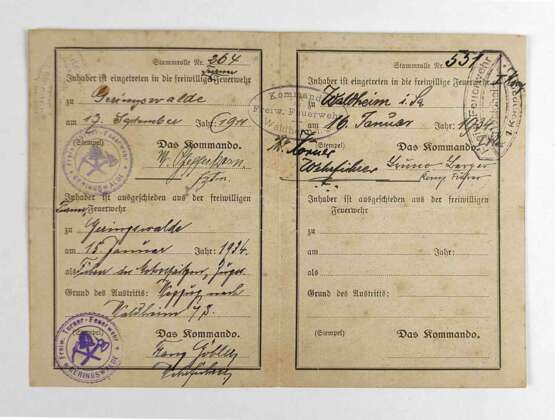 Stammrolle Nr. 264
Inhaber ist eingetreten in die freiwillige Feuerwehr
zu Geringswalde
am 17. September Jahr: 1911
(Stempel) Das Kommando.
Freiw. Turner-Feuerwehr
GERINGSWALDE
Inhaber ist ausgeschieden aus der freiwilligen
Feuerwehr
zu Geringswalde
am 15. Januar Jahr: 1934.
als
Grund des Austritts: Wegzug nach
Waldheim
(Stempel) Das Kommando.
Freiw. Turner-Feuerwehr
GERINGSWALDE
Franz
Stammrolle Nr. 531
Inhaber ist eingetreten in die freiwillige Feuerwehr
zu Waldheim i. Sa
am 16. Januar 1934
Kommando
Freiw. Feuerwehr
Waldheim
Feuerwehr
(Stempel) Das Kommando.
Wehrführer Bruno Berger
Komp. Führer
Inhaber ist ausgeschieden aus der freiwilligen
Feuerwehr
zu
am Jahr:
als
Grund des Austritts:
(Stempel) Das Kommando.